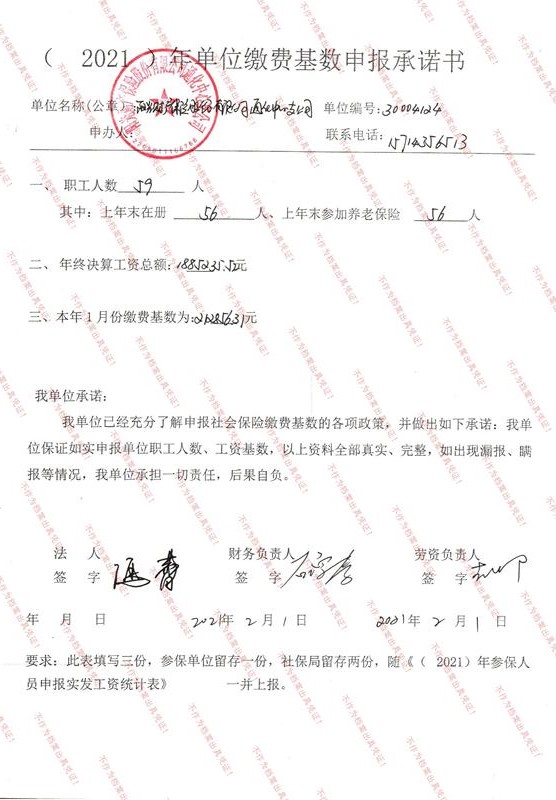 （ 2021 ）年单位缴费基数申报承诺书
单位名称(公章): 单位编号:30004124
申办人: 联系电话:15714356513
一、 职工人数 59 人
其中: 上年末在册 56 人、上年末参加养老保险 56 人
二、年终决算工资总额:1885235.52元
三、本年1月份缴费基数为:212856.31元
我单位承诺:
我单位已经充分了解申报社会保险缴费基数的各项政策，并做出如下承诺：我单
位保证如实申报单位职工人数、工资基数，以上资料全部真实、完整，如出现漏报、瞒
报等情况，我单位承担一切责任，后果自负。
法 人 财务负责人 劳资负责人
签 字 签 字 签 字
年 月 日 2021年 2 月 1 日 2021年 2 月 1 日
要求: 此表填写三份，参保单位留存一份，社保局留存两份，随《（ 2021）年参保人
员申报实发工资统计表》 一并上报。
不作为档案出具凭证!